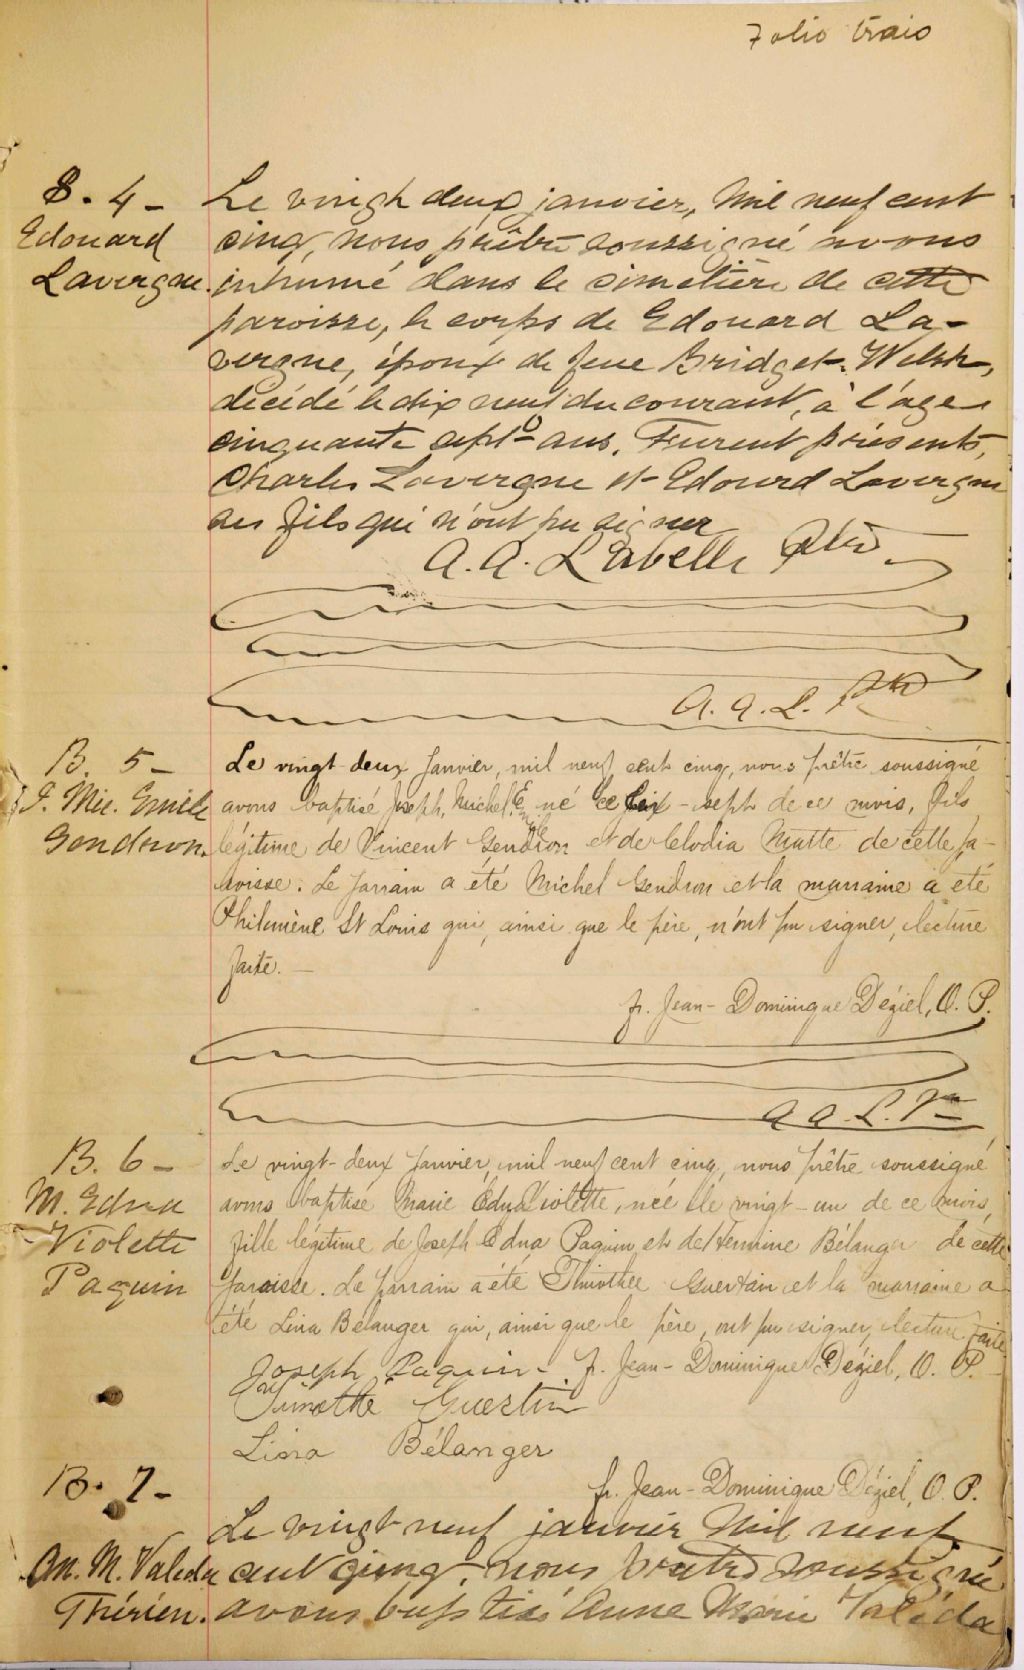 Folio trois
S. 4 -
Edouard
Lavergne.
Le vingt deux janvier, mil neuf cent
cinq, nous prêtre soussigné avons
inhumé dans le cimetière de cette
paroisse, le corps de Edouard La-
vergne, époux de feue Bridget Welsh,
décédé le dix neuf du courant, à l'âge
cinquante sept ans. Furent présents,
Charles Lavergne et Edouard Lavergne
ses fils qui n'ont pu signer
A. A. Labelle Ptre
A. A. L. Ptre
B. 5 -
J. Mic. Emile
Gendron.
Le vingt-deux Janvier, mil neuf cent cinq, nous prêtre soussigné
avons baptisé Joseph, Michel, Emile né le dix-sept de ce mois, fils
légitime de Vincent Gendron et de Clodia Matte de cette pa-
roisse. Le parrain a été Michel Gendron et la marraine a été
Philomène St Louis qui, ainsi que le père, n'ont pu signer, lecture
faite.
fr. Jean-Dominique Déziel, O. P.
A A. L. Ptre
B. 6 -
M. Edna
Violette
Paquin
Le vingt-deux Janvier, mil neuf cent cinq, nous prêtre soussigné
avons baptisé Marie Edna Violette, née le vingt-un de ce mois,
fille légitime de Joseph Edna Paquin et de Hermine Bélanger de cette
paroisse. Le parrain a été Thimothée Guertain et la marraine a
été Lina Bélanger qui, ainsi que le père, ont pu signer, lecture faite.
Joseph Paquin - fr. Jean-Dominique Déziel, O. P.
Timothé Guertin
Lina Bélanger
fr. Jean-Dominique Déziel, O. P.
B. 7 -
An. M. Valeda
Thérien.
Le vingt neuf janvier Mil neuf
cent cinq, nous prêtre soussigné
avons baptisé Anne Marie Valéda